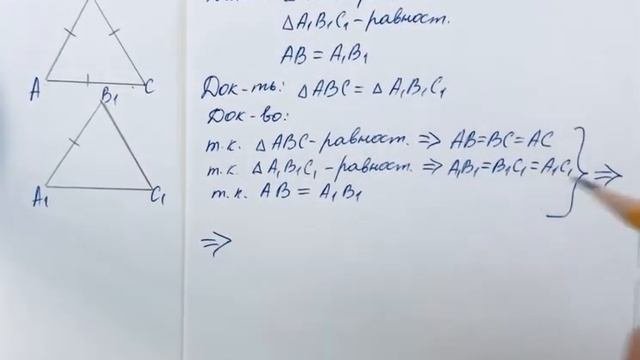 △A₁B₁C₁ - равност.
AB = A₁B₁
Док-ть: △ABC = △A₁B₁C₁
Док-во:
т.к. △ABC - равност. ⇒ AB=BC=AC
т.к. △A₁B₁C₁ - равност. ⇒ A₁B₁=B₁C₁=A₁C₁ ⇒
т.к. AB = A₁B₁
⇒
A C
B₁
A₁ C₁